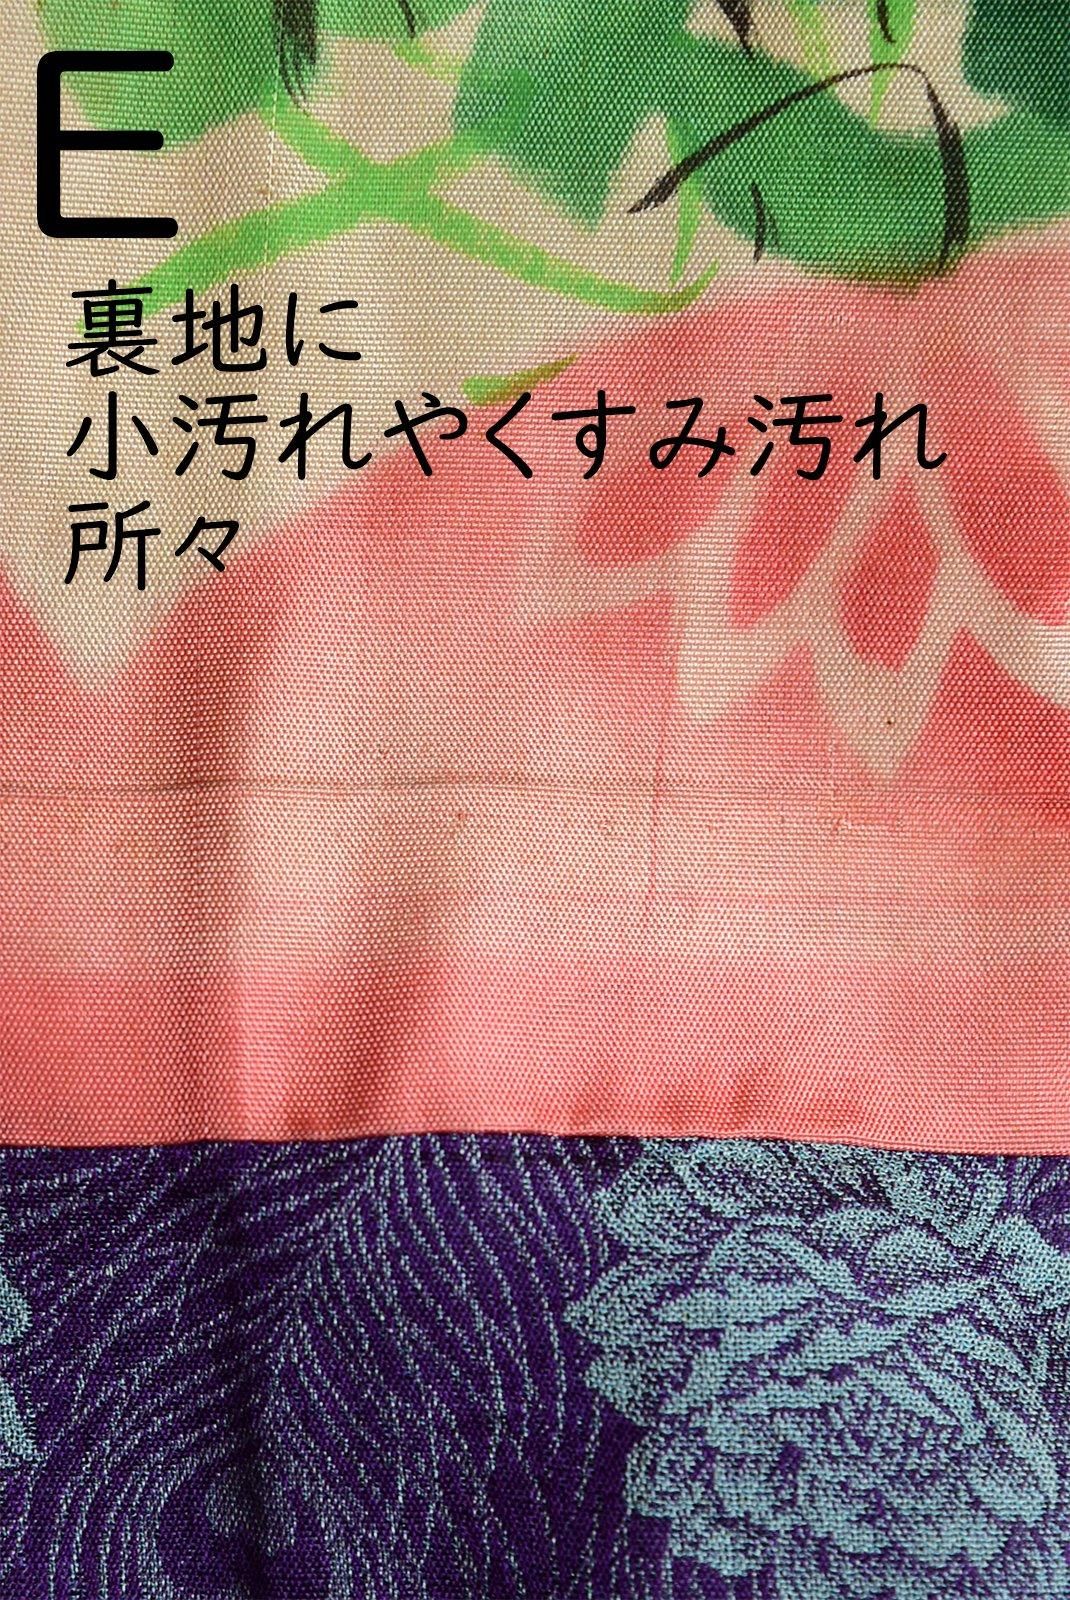 E
裏地に
小汚れやくすみ汚れ
所々